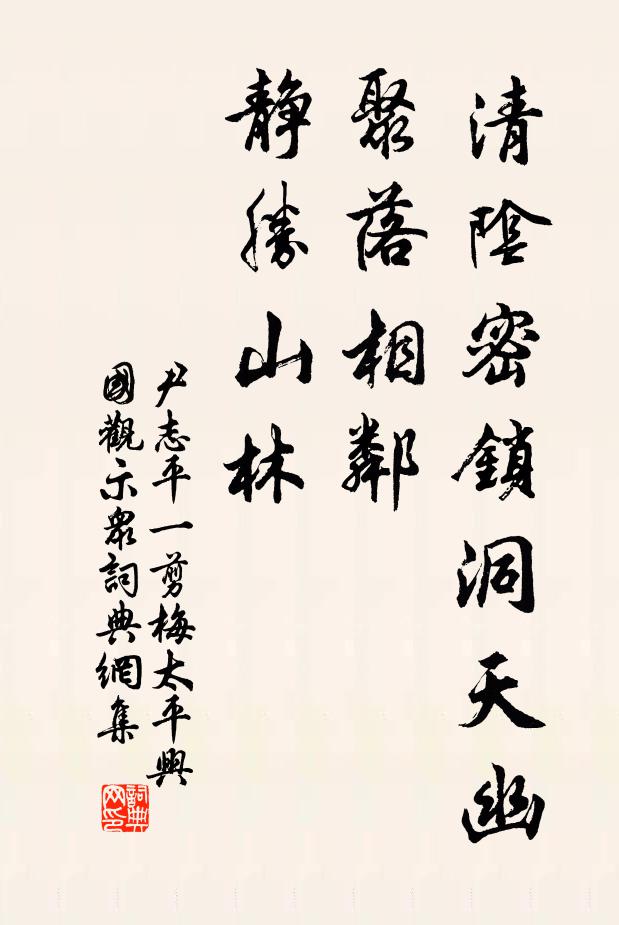 清陰密鎖洞天幽
聚落相鄰
靜勝山林
尹志平一剪梅太平興
國觀示衆詞典網集
詞典网印